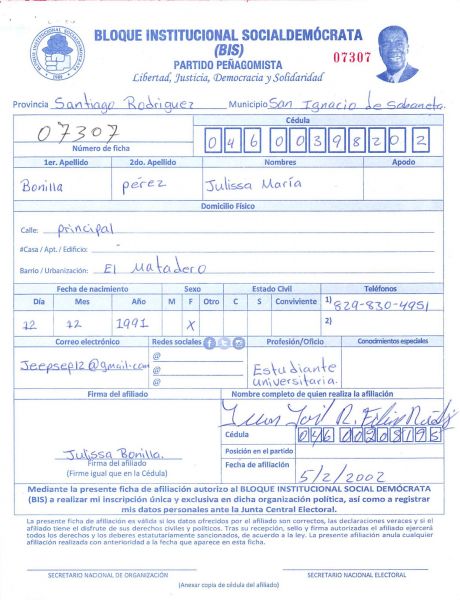 BLOQUE INSTITUCIONAL SOCIALDEMÓCRATA
(BIS)
07307
PARTIDO PEÑAGOMISTA
Libertad, Justicia, Democracia y Solidaridad
Provincia Santiago Rodriguez Municipio San Ignacio de Sabaneta
07307
Número de ficha
Cédula
046 0039820 2
1er. Apellido 2do. Apellido Nombres Apodo
Bonilla pérez Julissa María
Domicilio Físico
Calle: principal
#Casa / Apt. / Edificio: -
Barrio / Urbanización: El Matadero
Fecha de nacimiento Sexo Estado Civil Teléfonos
Día Mes Año M F Otro C S Conviviente 1) 829-830-4951
12 12 1991 X 2)
Correo electrónico Redes sociales Profesión/Oficio Conocimientos especiales
Jeepsep12@gmail.com @ Estudiante
@ universitaria.
@
Firma del afiliado Nombre completo de quien realiza la afiliación
Cédula
Julissa Bonilla.
Firma del afiliado
(Firme igual que en la Cédula)
Posición en el partido
Fecha de afiliación 5/2/2002
Mediante la presente ficha de afiliación autorizo al BLOQUE INSTITUCIONAL SOCIAL DEMÓCRATA
(BIS) a realizar mi inscripción única y exclusiva en dicha organización política, así como a registrar
mis datos personales ante la Junta Central Electoral.
La presente ficha de afiliación es válida si los datos ofrecidos por el afiliado son correctos, las declaraciones veraces y si el
afiliado tiene el disfrute de sus derechos civiles y políticos. Tras su recepción, sello y firma autorizadas el afiliado ejercerá
todos los derechos y los deberes estatutariamente sancionados, de acuerdo a la ley. La presente afiliación anula cualquier
afiliación realizada con anterioridad a la fecha que aparece en esta ficha.
SECRETARIO NACIONAL DE ORGANIZACIÓN SECRETARIO NACIONAL ELECTORAL
(Anexar copia de cédula del afiliado)